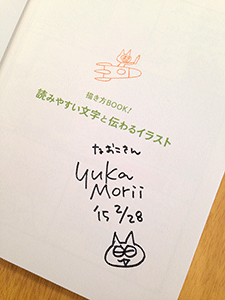 描き方BOOK!
読みやすい文字と伝わるイラスト
なおこさん
yuka
Morii
'15 2/28